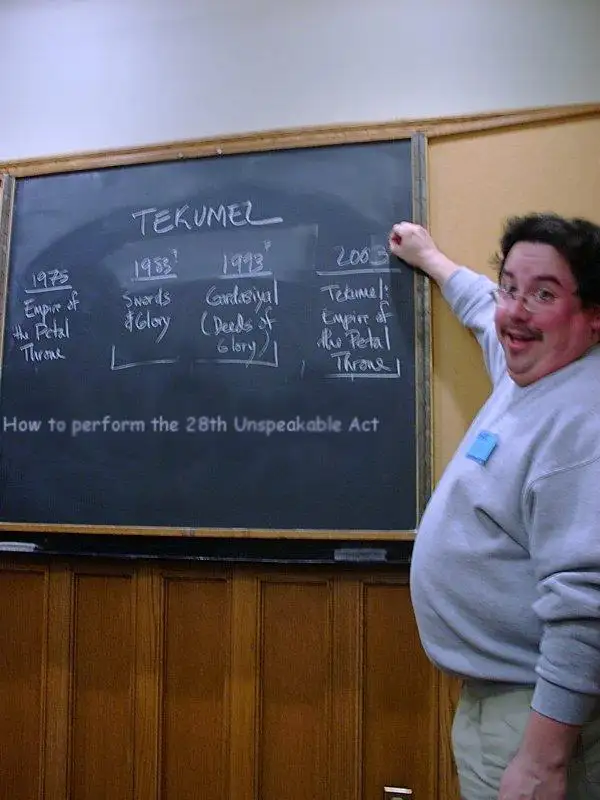 TEKUMEL
1975
Empire of
the Petal
Throne
1983?
Swords
& Glory
1993?
Gardasiyal
(Deeds of
Glory)
2003
Tekumel:
Empire of
the Petal
Throne
How to perform the 28th Unspeakable Act